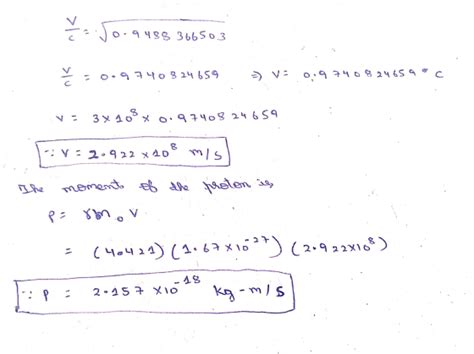 V/c = √0.9488366503
V/c = 0.9740824659 ⇒ V = 0.9740824659 * c
V = 3×10⁸ × 0.9740824659
∵ V = 2.922 ×10⁸ m/s
The moments of the proton is,
P = γm₀V
= (4.421) (1.67×10⁻²⁷) (2.922×10⁸)
∵ P = 2.157 ×10⁻¹⁸ kg-m/s